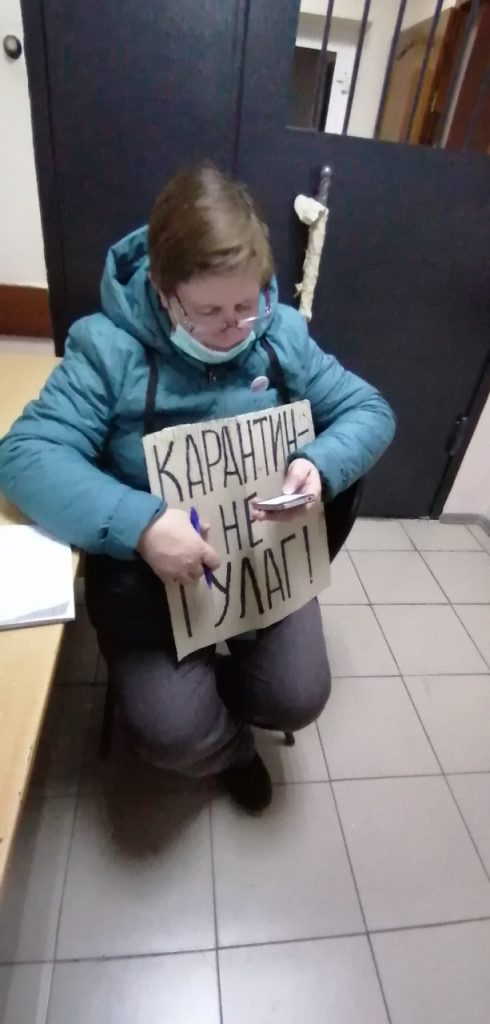 КАРАНТИН-
НЕ
ГУЛАГ!